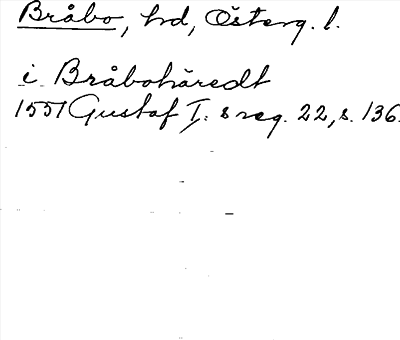 Bråbo, hd, Österg. l.
i Bråbohäredt
1551 Gustaf I:s reg. 22, s. 136.